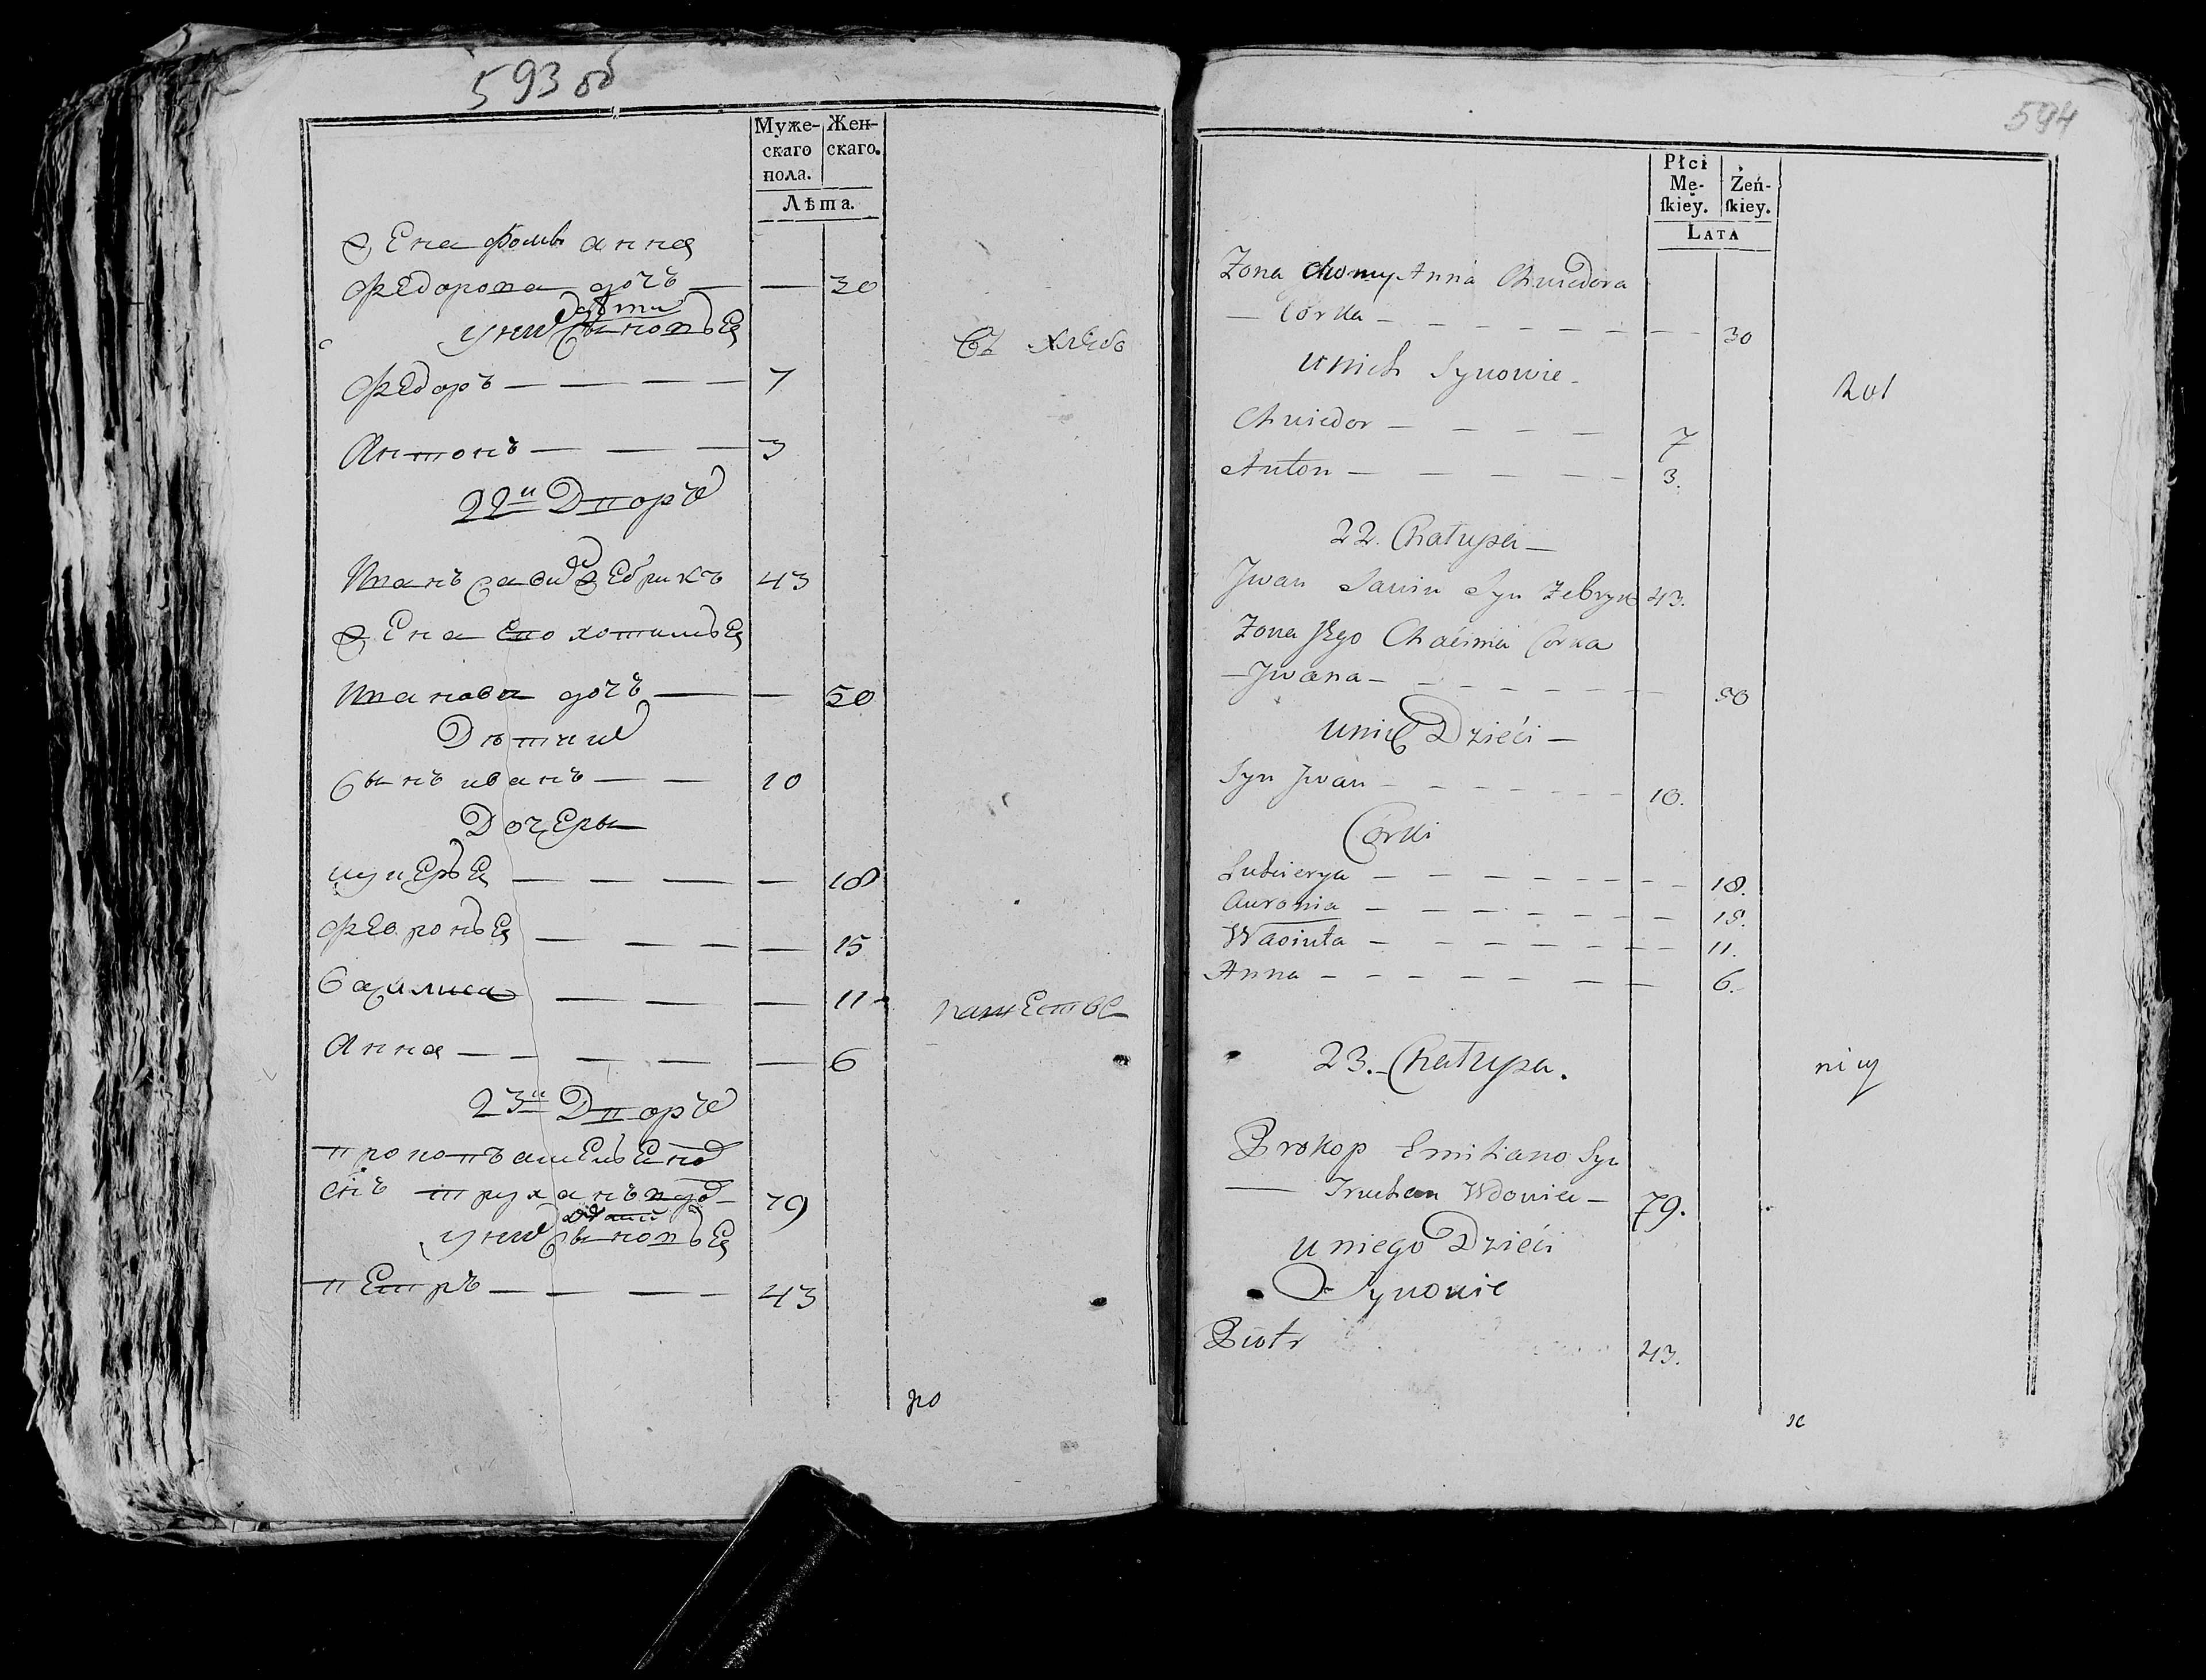 593 об
Муже-
скаго
пола.
Жен-
скаго.
Лѣта.
Жена Фомы анна
Федорова дочъ — — 30
дѣти
у них Сыновья
Съ хлеба
Федоръ — — — — 7
Антонъ — — — 3
22й Дворъ
Иванъ сави Жебрикъ 43
Жена Его хотимья
Иванова дочъ — — 50
Дѣти их
Сынъ иванъ — — 10
Дочеры
— — — — 18
Февронья — — — — 15
Василиса — — — 11
Анна — — — — — 6
23й Дворъ
прокопъ
снъ труханъ вдо 79
у них Сыновья
петръ — — — — 43
594
Płci
Mę-
skiey.
Żeń-
skiey.
LATA
Zona Chomy Anna Chwiedora
— Corka — — — — — — — — 30
u nich Synowie —
Rol
Chwiedor — — — — 7
Anton — — — — — 3.
22. Chałupa —
Jwan Sawin Syn Zebryk 43.
Zona Jego Chacimia Corka
— Jwana — — — — — — 50
u nich Dzieći —
Syn Jwan — — — — — — 10.
Corki
— — — — — — — — 18.
Auronia — — — — — — — 15.
— — — — — — — 11.
Anna — — — — — — — 6.
23. Chałupa.
Prokop Emiliano Syn
— Truchan Wdowiec — 79.
u niego Dzieći
Synowie
Piotr 43.